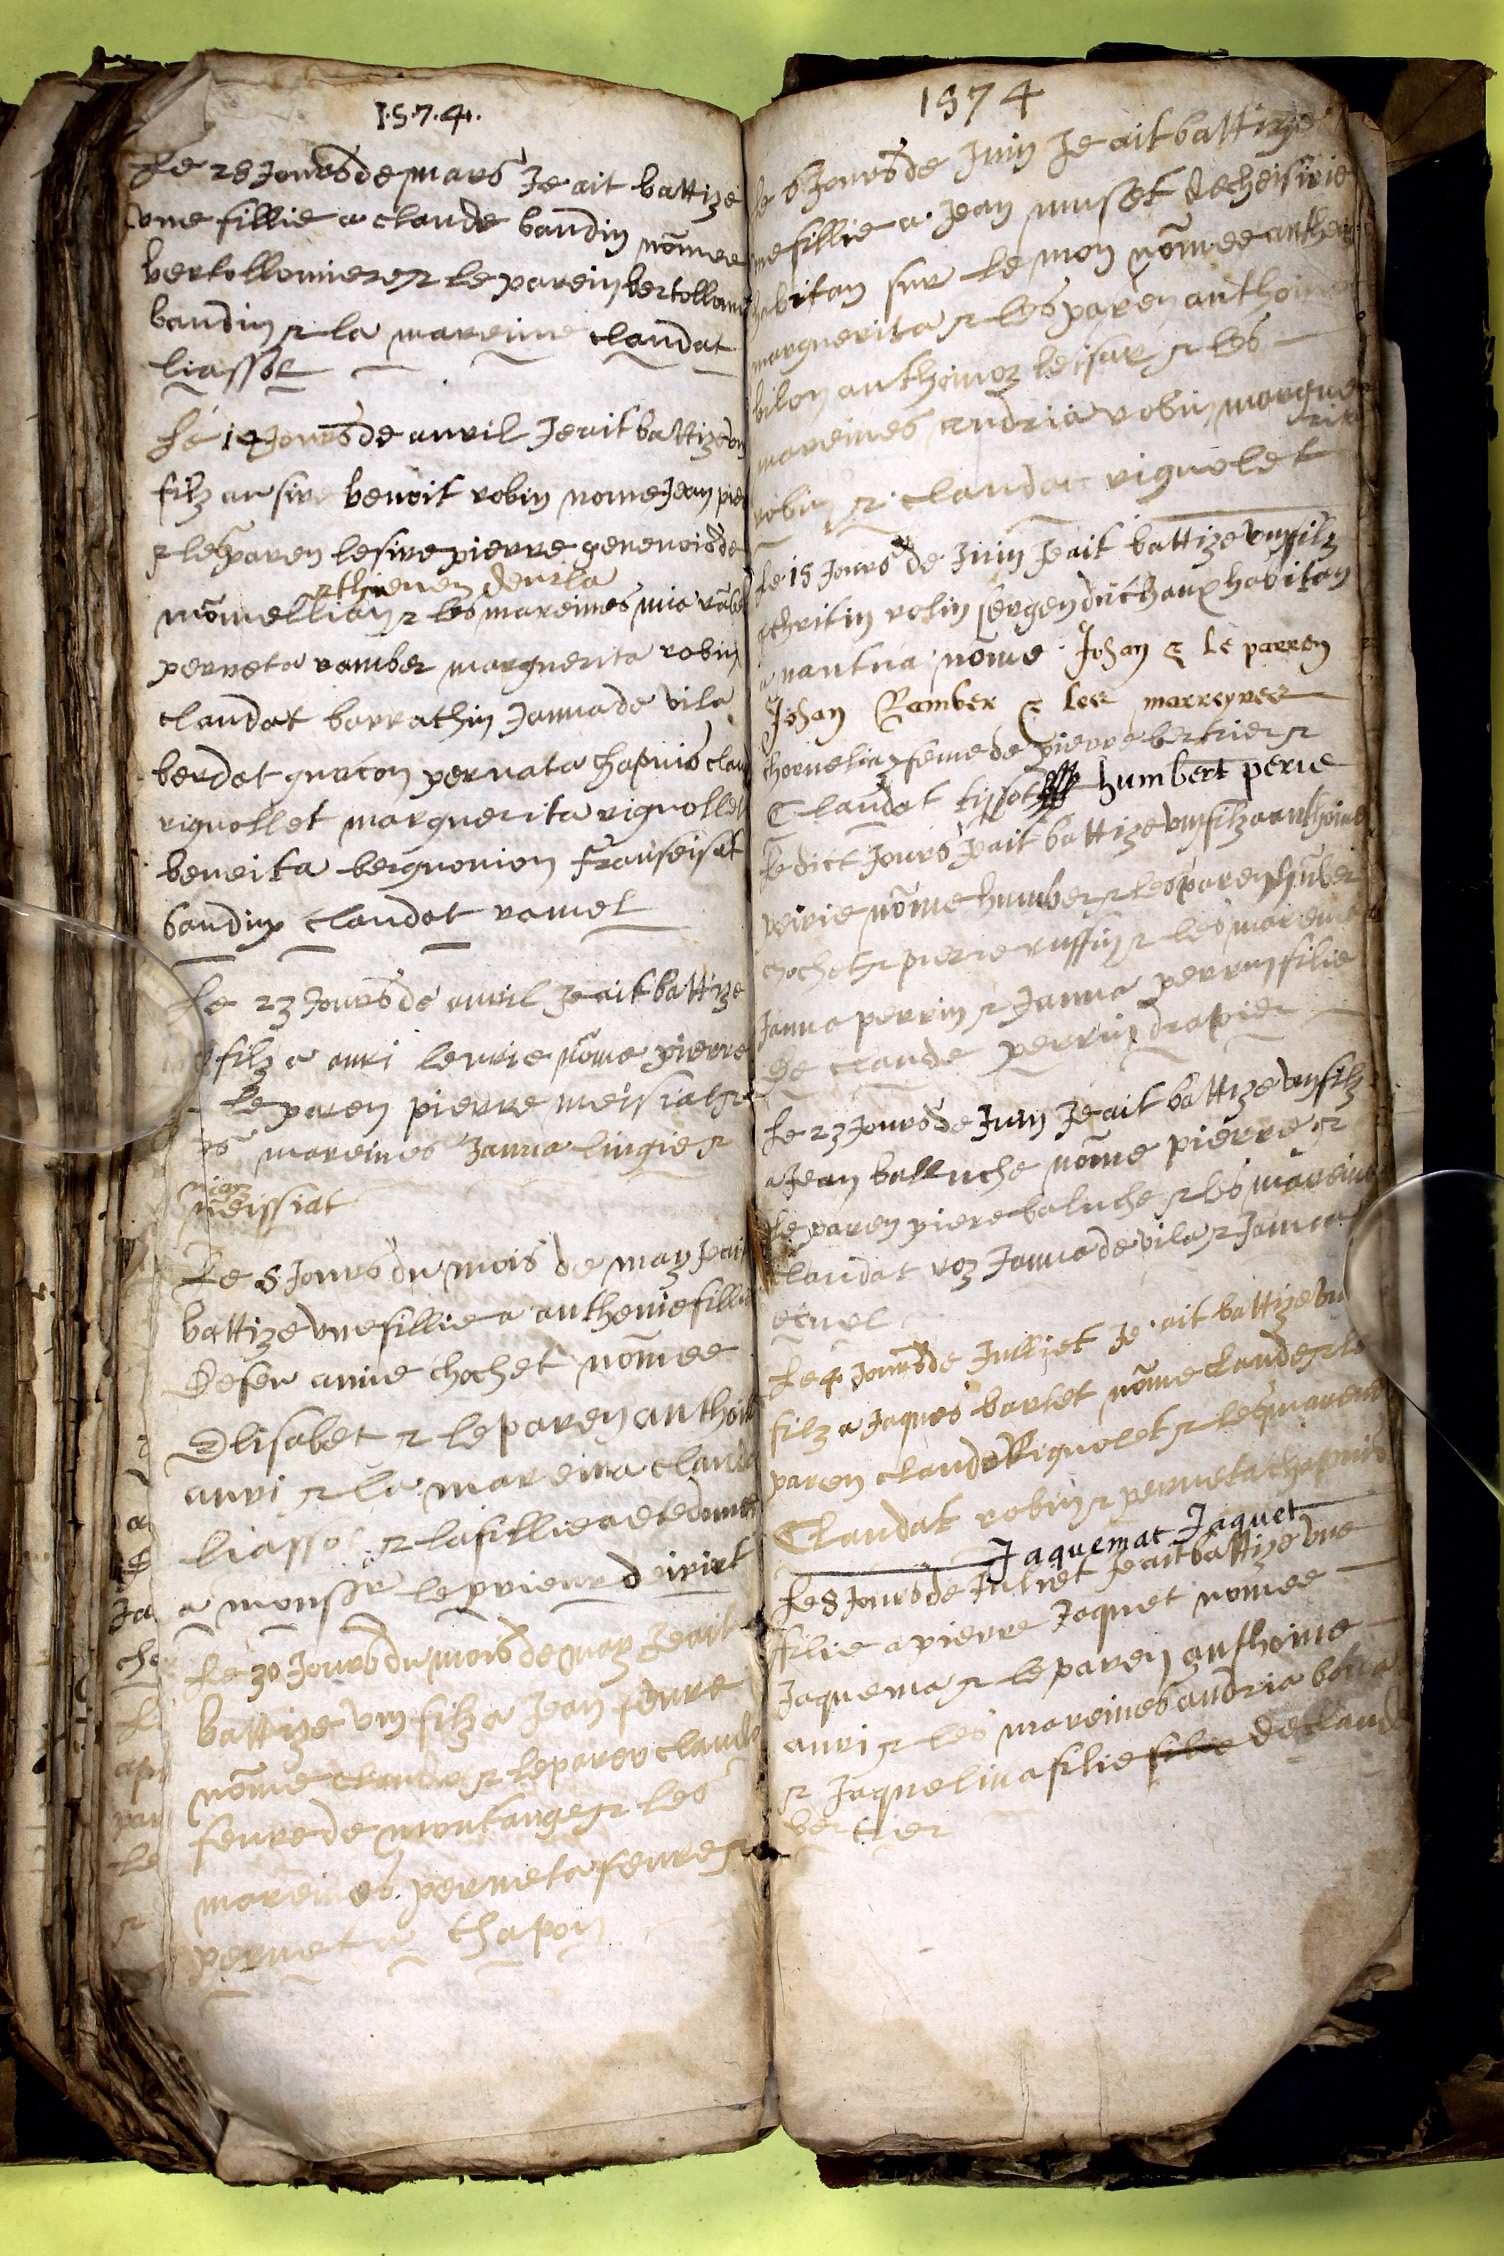 1.5.7.4.
Le 28 Jours de mars Je ait battize
vne fillie a claude baudin nōmee
bertollomiere et le parein bertollomi
baudin et la mareine claudat
liassot
Le 14 Jours de auril Je ait battize vn
filz au sire benoit robin nome Jean pier
et les paren le sire pierre geneuois de
et thieuen deuila
nōmellian et les mareines mia
perneta ramber marguerita robin
claudat borrathin Janna de vila
berdat guacon pernata chapuis clau
vignollet marguerita vignollet
beneita bergnonion franseisat
baudin claudat ramel
Le 23 Jours de auril Je ait battize
filz a auri leurie nōme pierre
Le paren pierre meissiat et
es mareines Janna lingie et
meissiat
Le 8 Jours du mois de may Je ait
battize vne fillie a anthenie fillie
de feu anne chochet nōmee
Elisabet et le paren anthoin
auri et la mareina clauda
liasso et la fillie a ete donnee
a monssr le prieur
Le 30 Jours du mois de may Je ait
battize vn filz a Jean feure
nōme claude et le paren claude
feure de montange et les
mareines perneta feure et
perneta chapon
1574
Le 6 Jours de Juin Je ait battize
ne fillie a Jean muset de
habitan sur le mon nōmee anthe
marguerita et les paren anthoine
bilon anthoinoz leisar et les
mareines andria robin margue
rita
robin et claudat vignolet
Le 15 Jours de Juin Je ait battize vn filz
a thritin rolin sergen duchaux habitan
a nantua nōme Johan et le parren
Johan Ramber et les marreynes
thornelia feme de pierre bertrier et
Claudat tissot humbert perie
Le dict Jours Je ait battize vn filz a anthoine
peirie nōme humber et les paren humber
chochet et pierre ruffin et les mareines
Janna perrin et Janna perrin filie
de claude perrin drapier
Le 23 Jours de Juin Je ait battize vn filz
a Jean balluche nōme pierre et
le paren piere baluche et les mareines
claudat roz Janna de vila et Janna
Le 4 Jours de Julliet Je ait battize vn
filz a Jaques barlet nōme claude et le
paren claude Vignolet et les mareines
Claudat robin et perneta chapuis
Jaquemat Jaquet
Le 8 Jours de Juliet Je ait battize vne
filie a pierre Jaquet nomee
Jaquema et le paren anthoine
auri et les mareines andria
et Jaquelina filie filie de claude
bertier